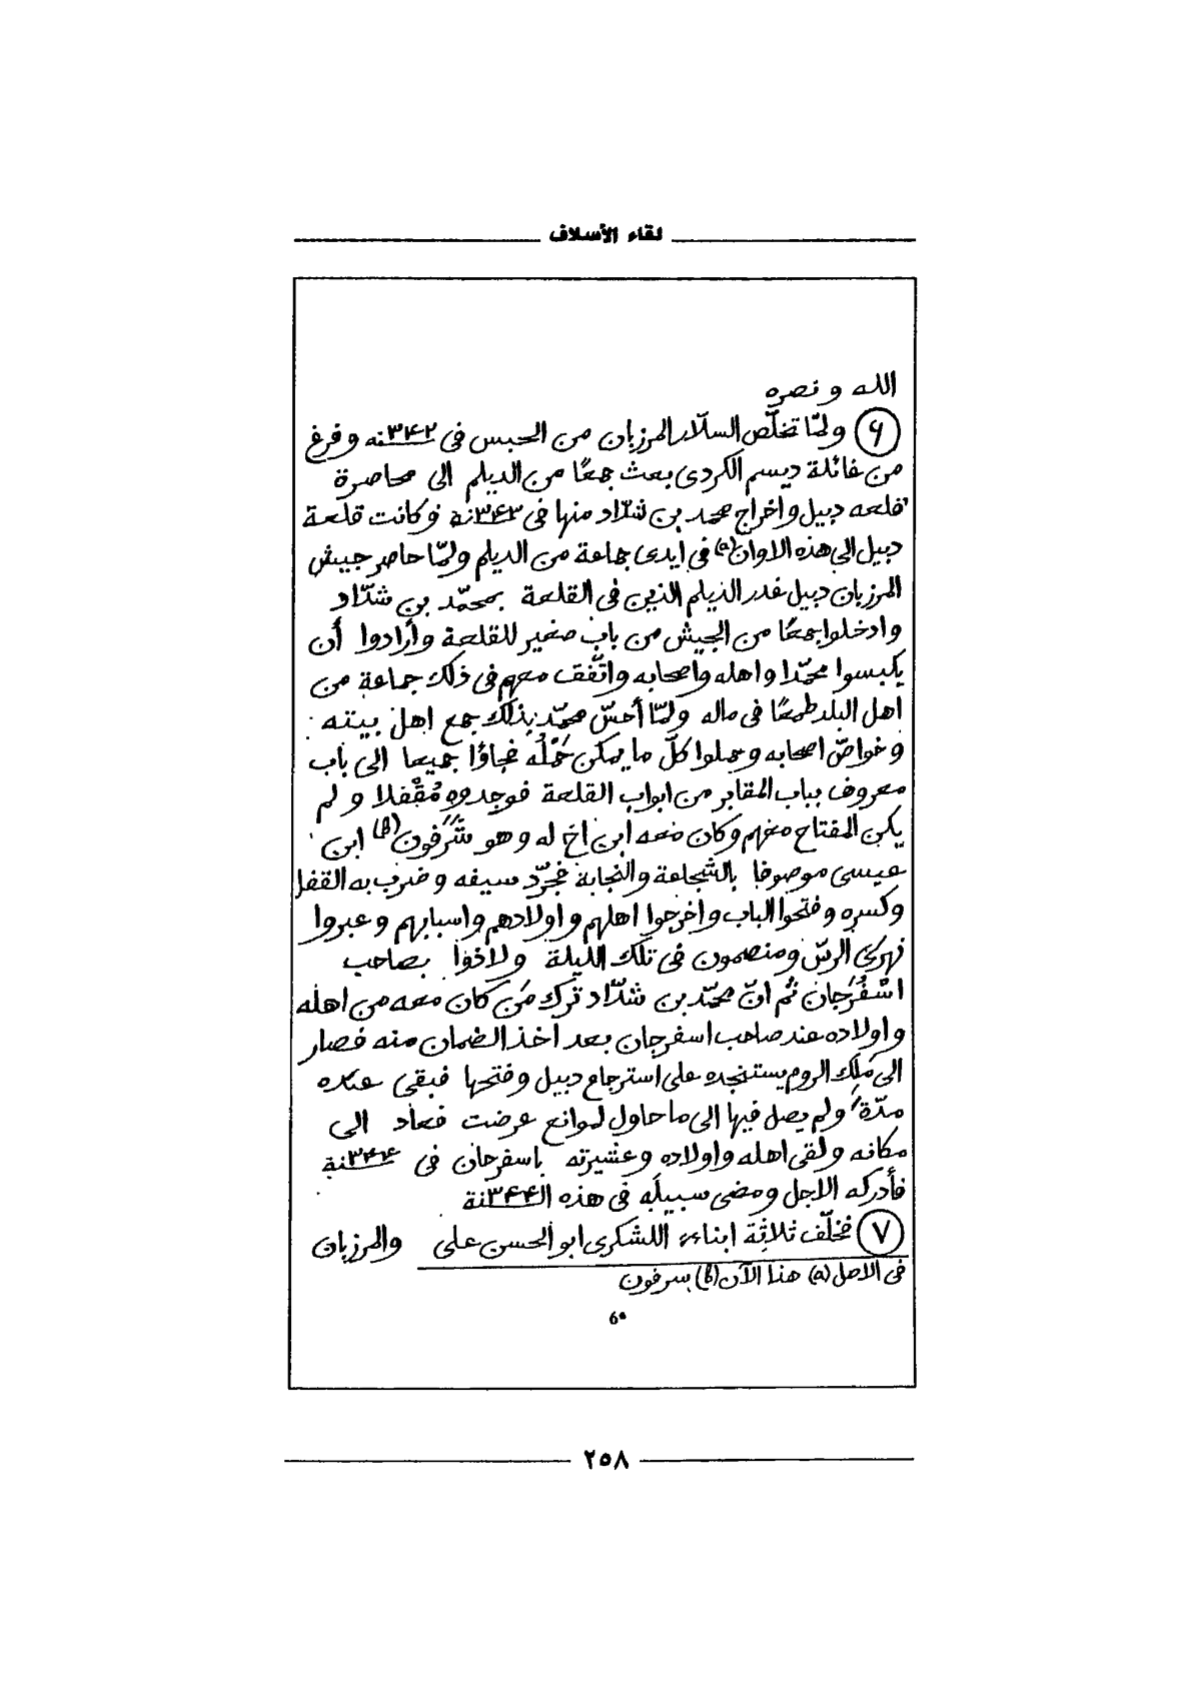 لقاء الأسلاف
الله و نصره
(۶) ولمّا تخلّص السلّار المرزبان من الحبس فى سنة ٣٤٢ و فرغ
من غائلة ديسم الكردى بعث جمعًا من الديلم الى محاصرة
قلعه دبيل واخراج محمد بن شدّاد منها فى سنة ٣٤٣ وكانت قلعة
دبيل الى هذه الاوان(a) فى ايدى جماعة من الديلم ولمّا حاصر جيش
المرزبان دبيل غدر الديلم الذين فى القلعة بمحمّد بن شدّاد
وادخلوا جمعًا من الجيش من باب صغير للقلعة وأرادوا أن
يكبسوا محمّدا واهله واصحابه واتّفق معهم فى ذلك جماعة من
اهل البلد طمعًا فى ماله ولمّا أحسّ محمّد بذلك جمع اهل بيته
وخواصّ اصحابه وحملوا كلّ ما يمكن حَمْلُه فجاؤا جميعا الى باب
معروف بباب المقابر من ابواب القلعة فوجدوه مُقْفلا و لم
يكن المفتاح معهم وكان معه ابن اخ له وهو شَرَفون(b) ابن
عيسى موصوفا بالشجاعة والنجابة فجرّد سيفه وضرب به القفل
وكسره وفتحوا الباب واخرجوا اهلهم واولادهم واسبابهم وعبروا
نهرَى الرسّ و منصمون فى تلك الليلة ولاذوا بصاحب
اسْفُرَجان ثم انّ محمّد بن شدّاد ترك مَن كان معه من اهله
واولاده عند صاحب اسفرجان بعد اخذ الضمان منه فصار
الى مَلِك الروم يستنجده على استرجاع دبيل وفتحها فبقى عنده
مدّة ولم يصل فيها الى ما حاول لموانع عرضت فعاد الى
مكانه ولقى اهله واولاده وعشيرته باسفرجان فى سنة ٣٤٤
فأدركه الاجل ومضى سبيلَه فى هذه السنة ٣٤٤
(٧) فخلّف ثلاثة ابناء اللشكرى ابو الحسن على والمرزبان
فى الاصل (a) هذا الآن (b) بسرفون
6٠
٢٥٨